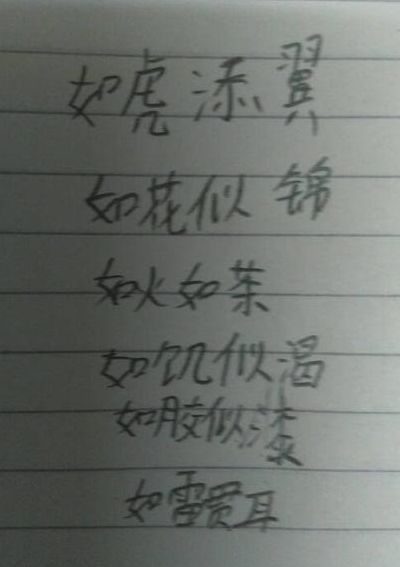 如虎添翼
如花似锦
如火如荼
如饥似渴
如胶似漆
如雷贯耳